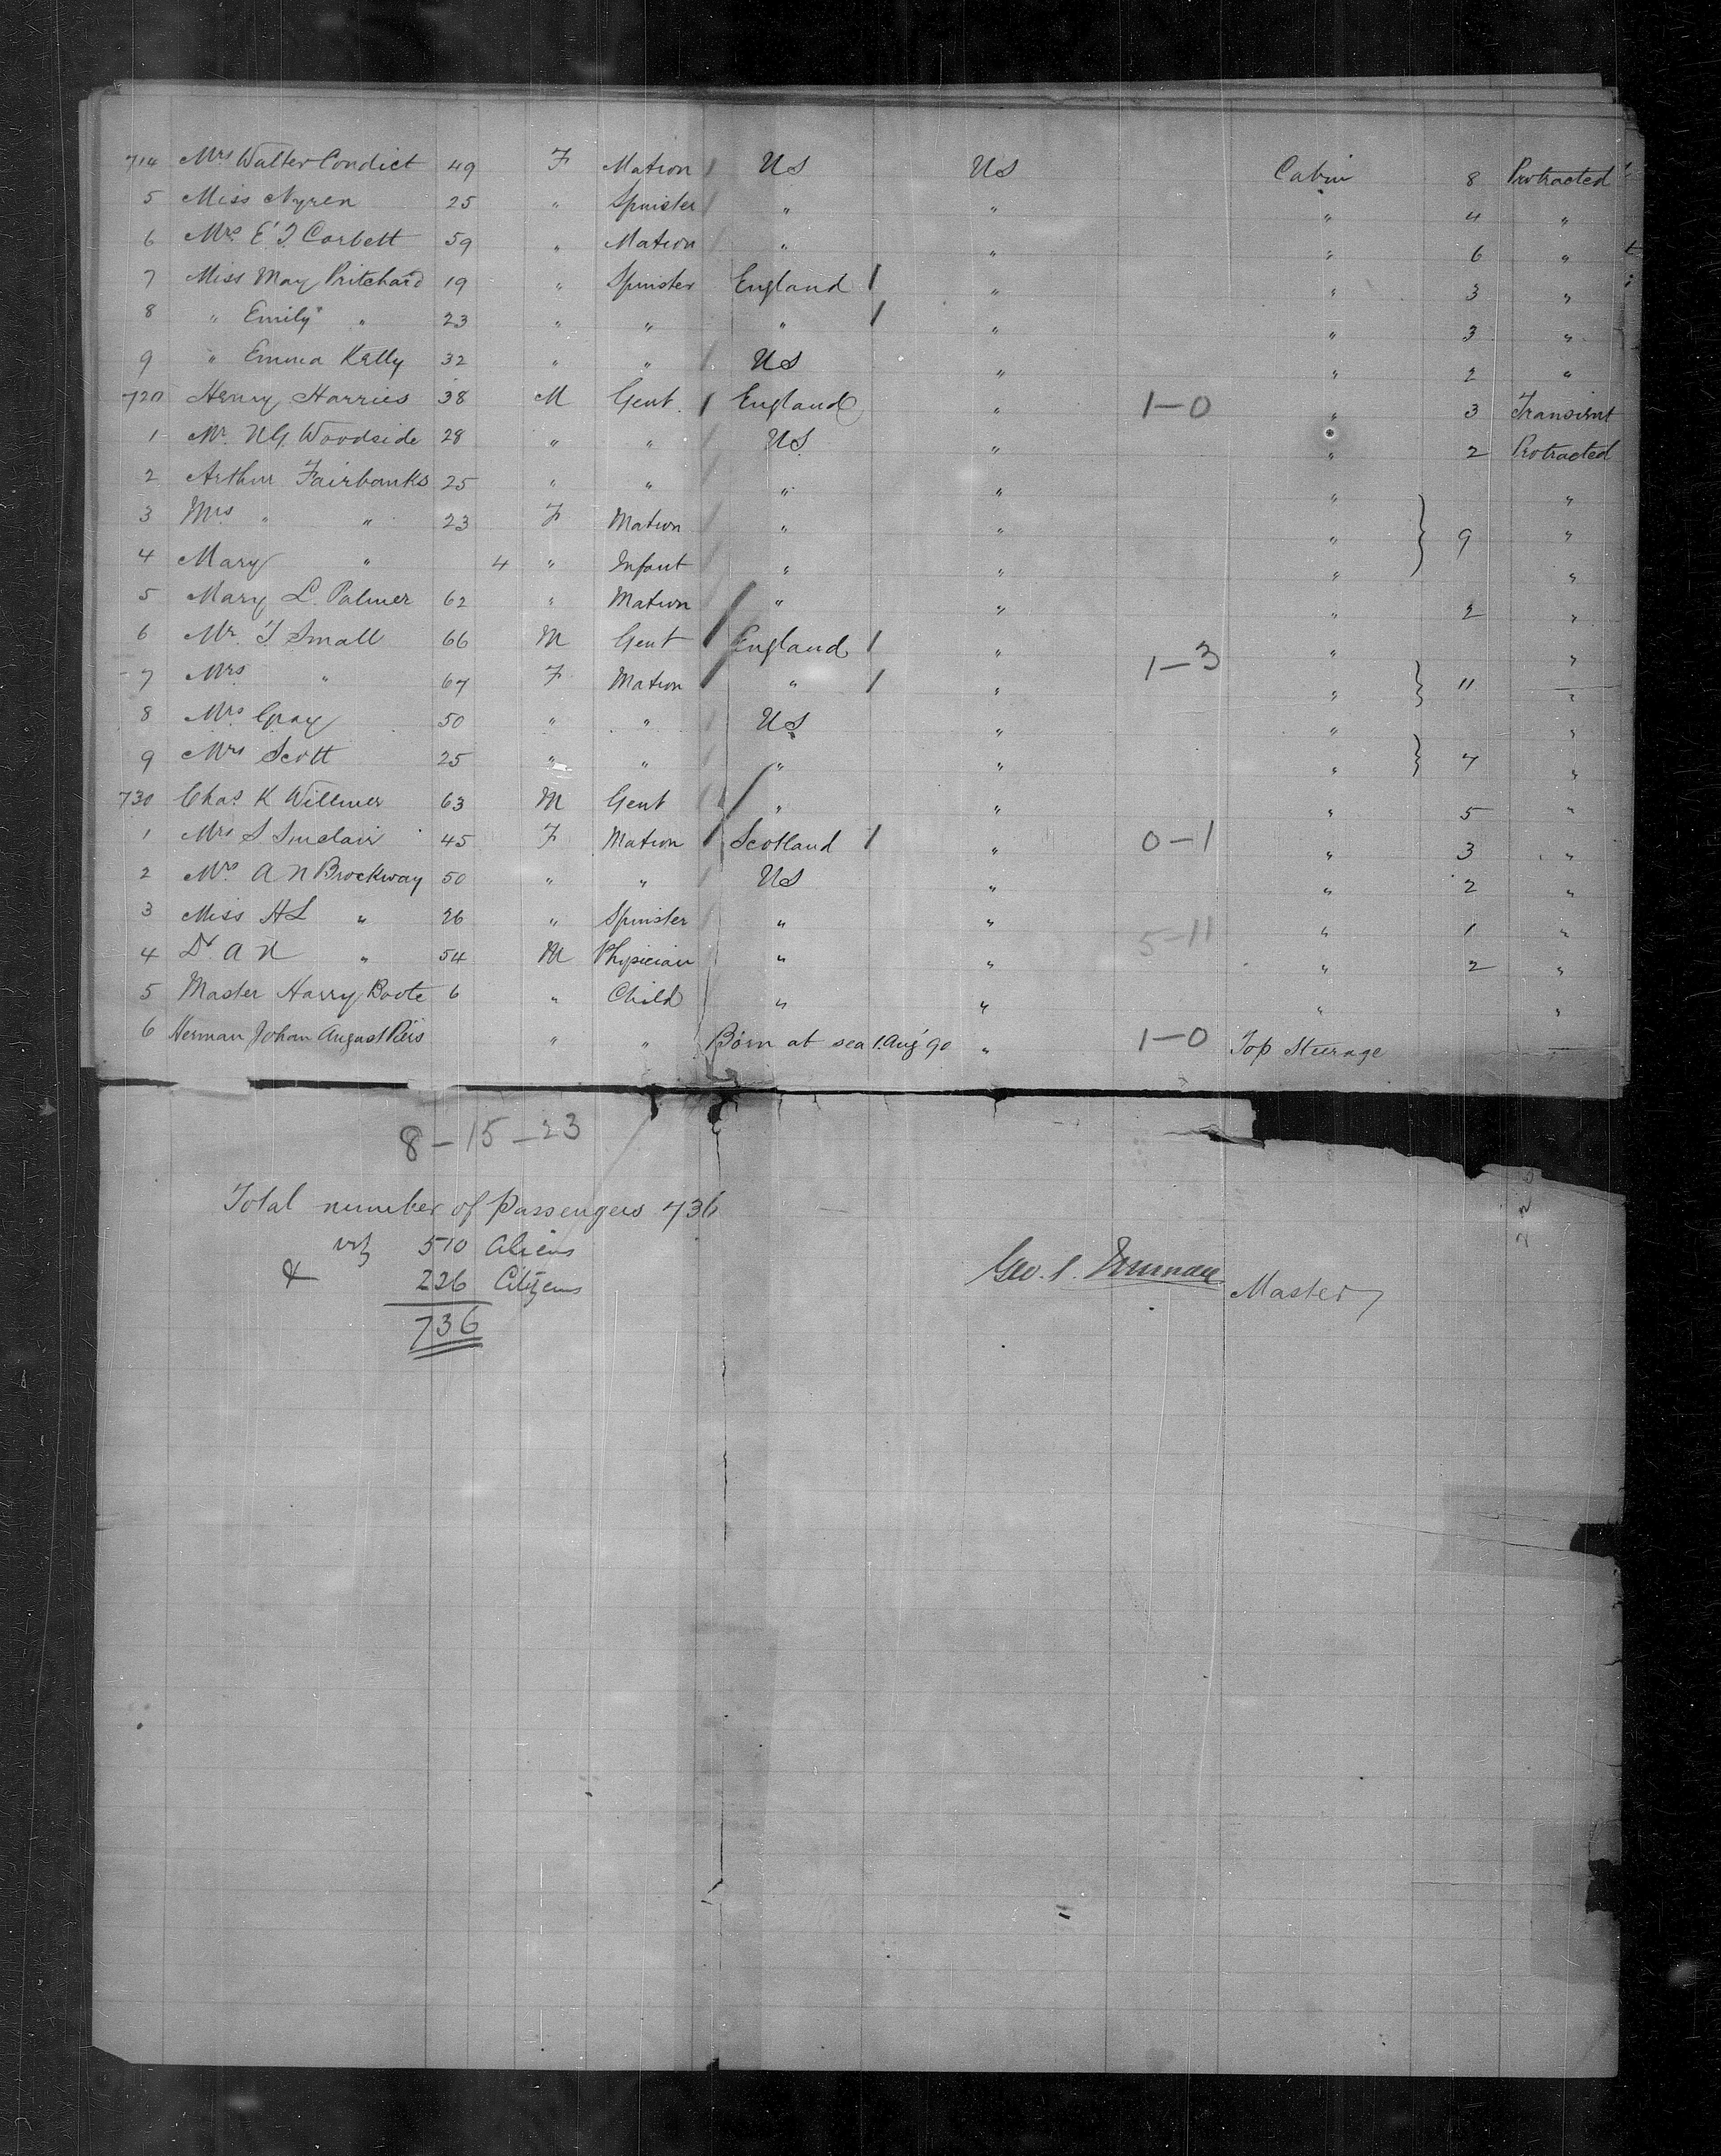 714 Mrs Walter Condict 49 F Matron US US Cabin 8 Protracted
5 Miss Nyren 25 " Spinster " " " 4 "
6 Mrs E T Corbett 59 " Matron " " " 6 "
7 Miss May Pritchard 19 " Spinster England / " " 3 "
8 " Emily " 23 " " " / " " 3 "
9 " Emma Kelly 32 " " US " " 2 "
720 Henry Harries 38 M Gent England " 1-0 " 3 Transient
1 Mr. N G. Woodside 28 " " US " " 2 Protracted
2 Arthur Fairbanks 25 " " " " " "
3 Mrs " " 23 F Matron " " " 9 "
4 Mary " 4 " Infant " " " "
5 Mary L. Palmer 62 " Matron " " " 2 "
6 Mr. T Small 66 M Gent England / " 1-3 " "
7 Mrs " 67 F Matron " / " " 11 "
8 Mrs Gray 50 " " US " " "
9 Mrs Scott 25 " " " " " 7 "
730 Chas K Willmer 63 M Gent " " " 5 "
1 Mrs S Sinclair 45 F Matron Scotland / " 0-1 " 3 "
2 Mrs. A N Brockway 50 " " US " " 2 "
3 Miss H L " 26 " Spinster " " " 1 "
4 Dr A N " 54 M Physician " " 5-11 " 2 "
5 Master Harry Boote 6 " Child " " " "
6 Herman Johan August " " Born at sea 1. Aug '90 " 1-0 Top Steerage
8-15-23
Total number of passengers 736
viz 510 Aliens
& 226 Citizens
736
Geo. S. Master